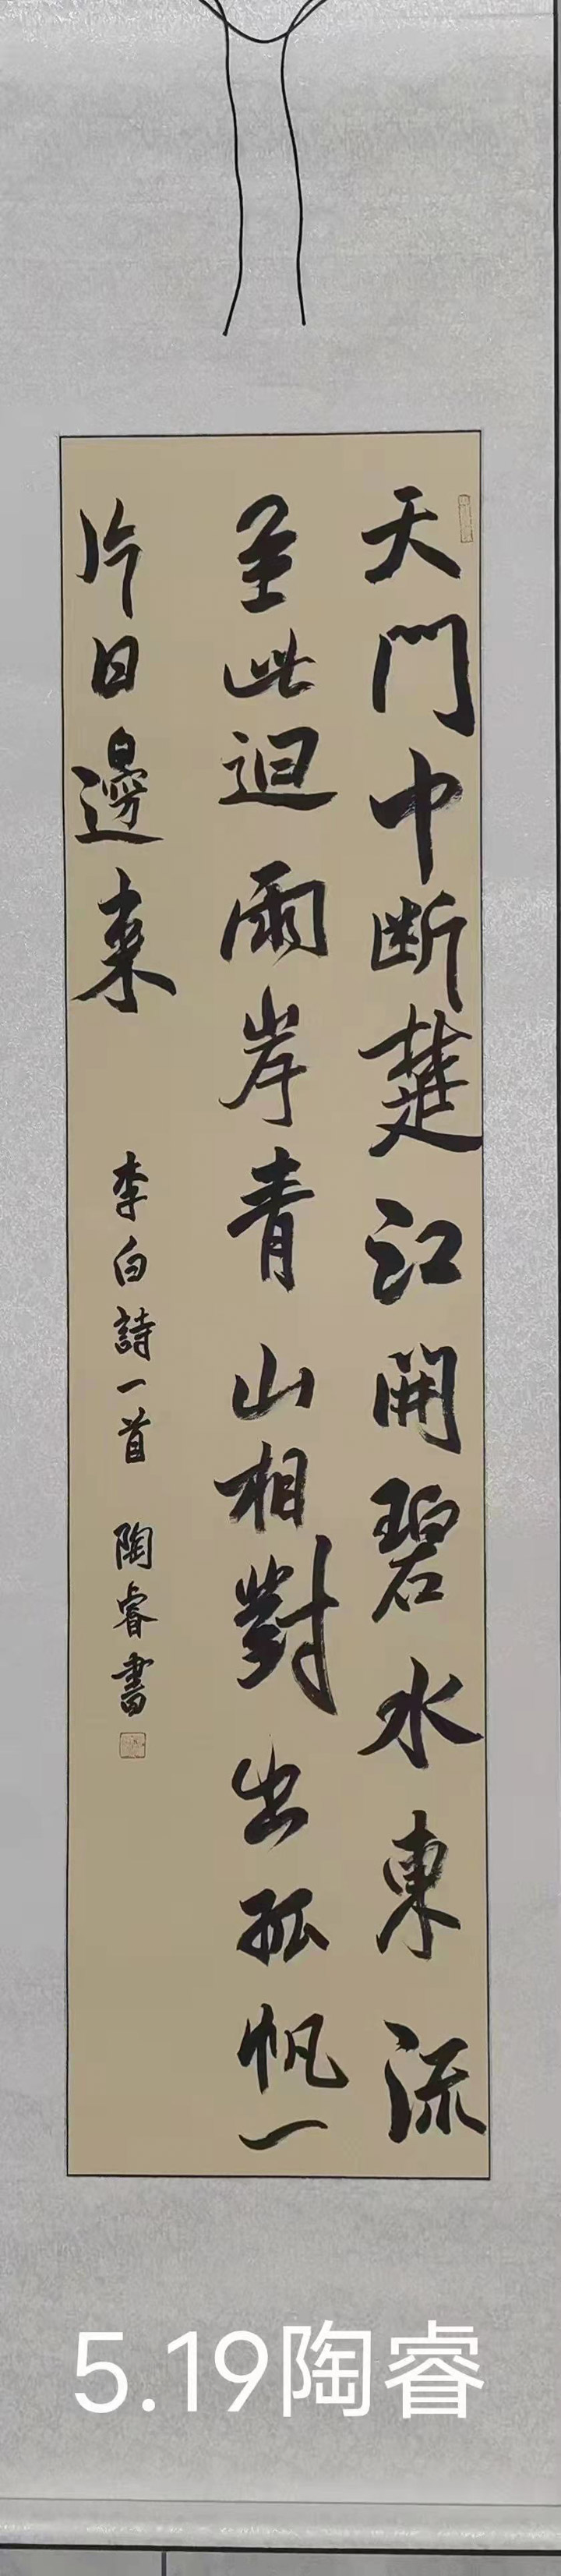 天門中断楚江開碧水東流
至此迴兩岸青山相對出孤帆一
片日邊来
李白詩一首 陶睿書
5.19陶睿